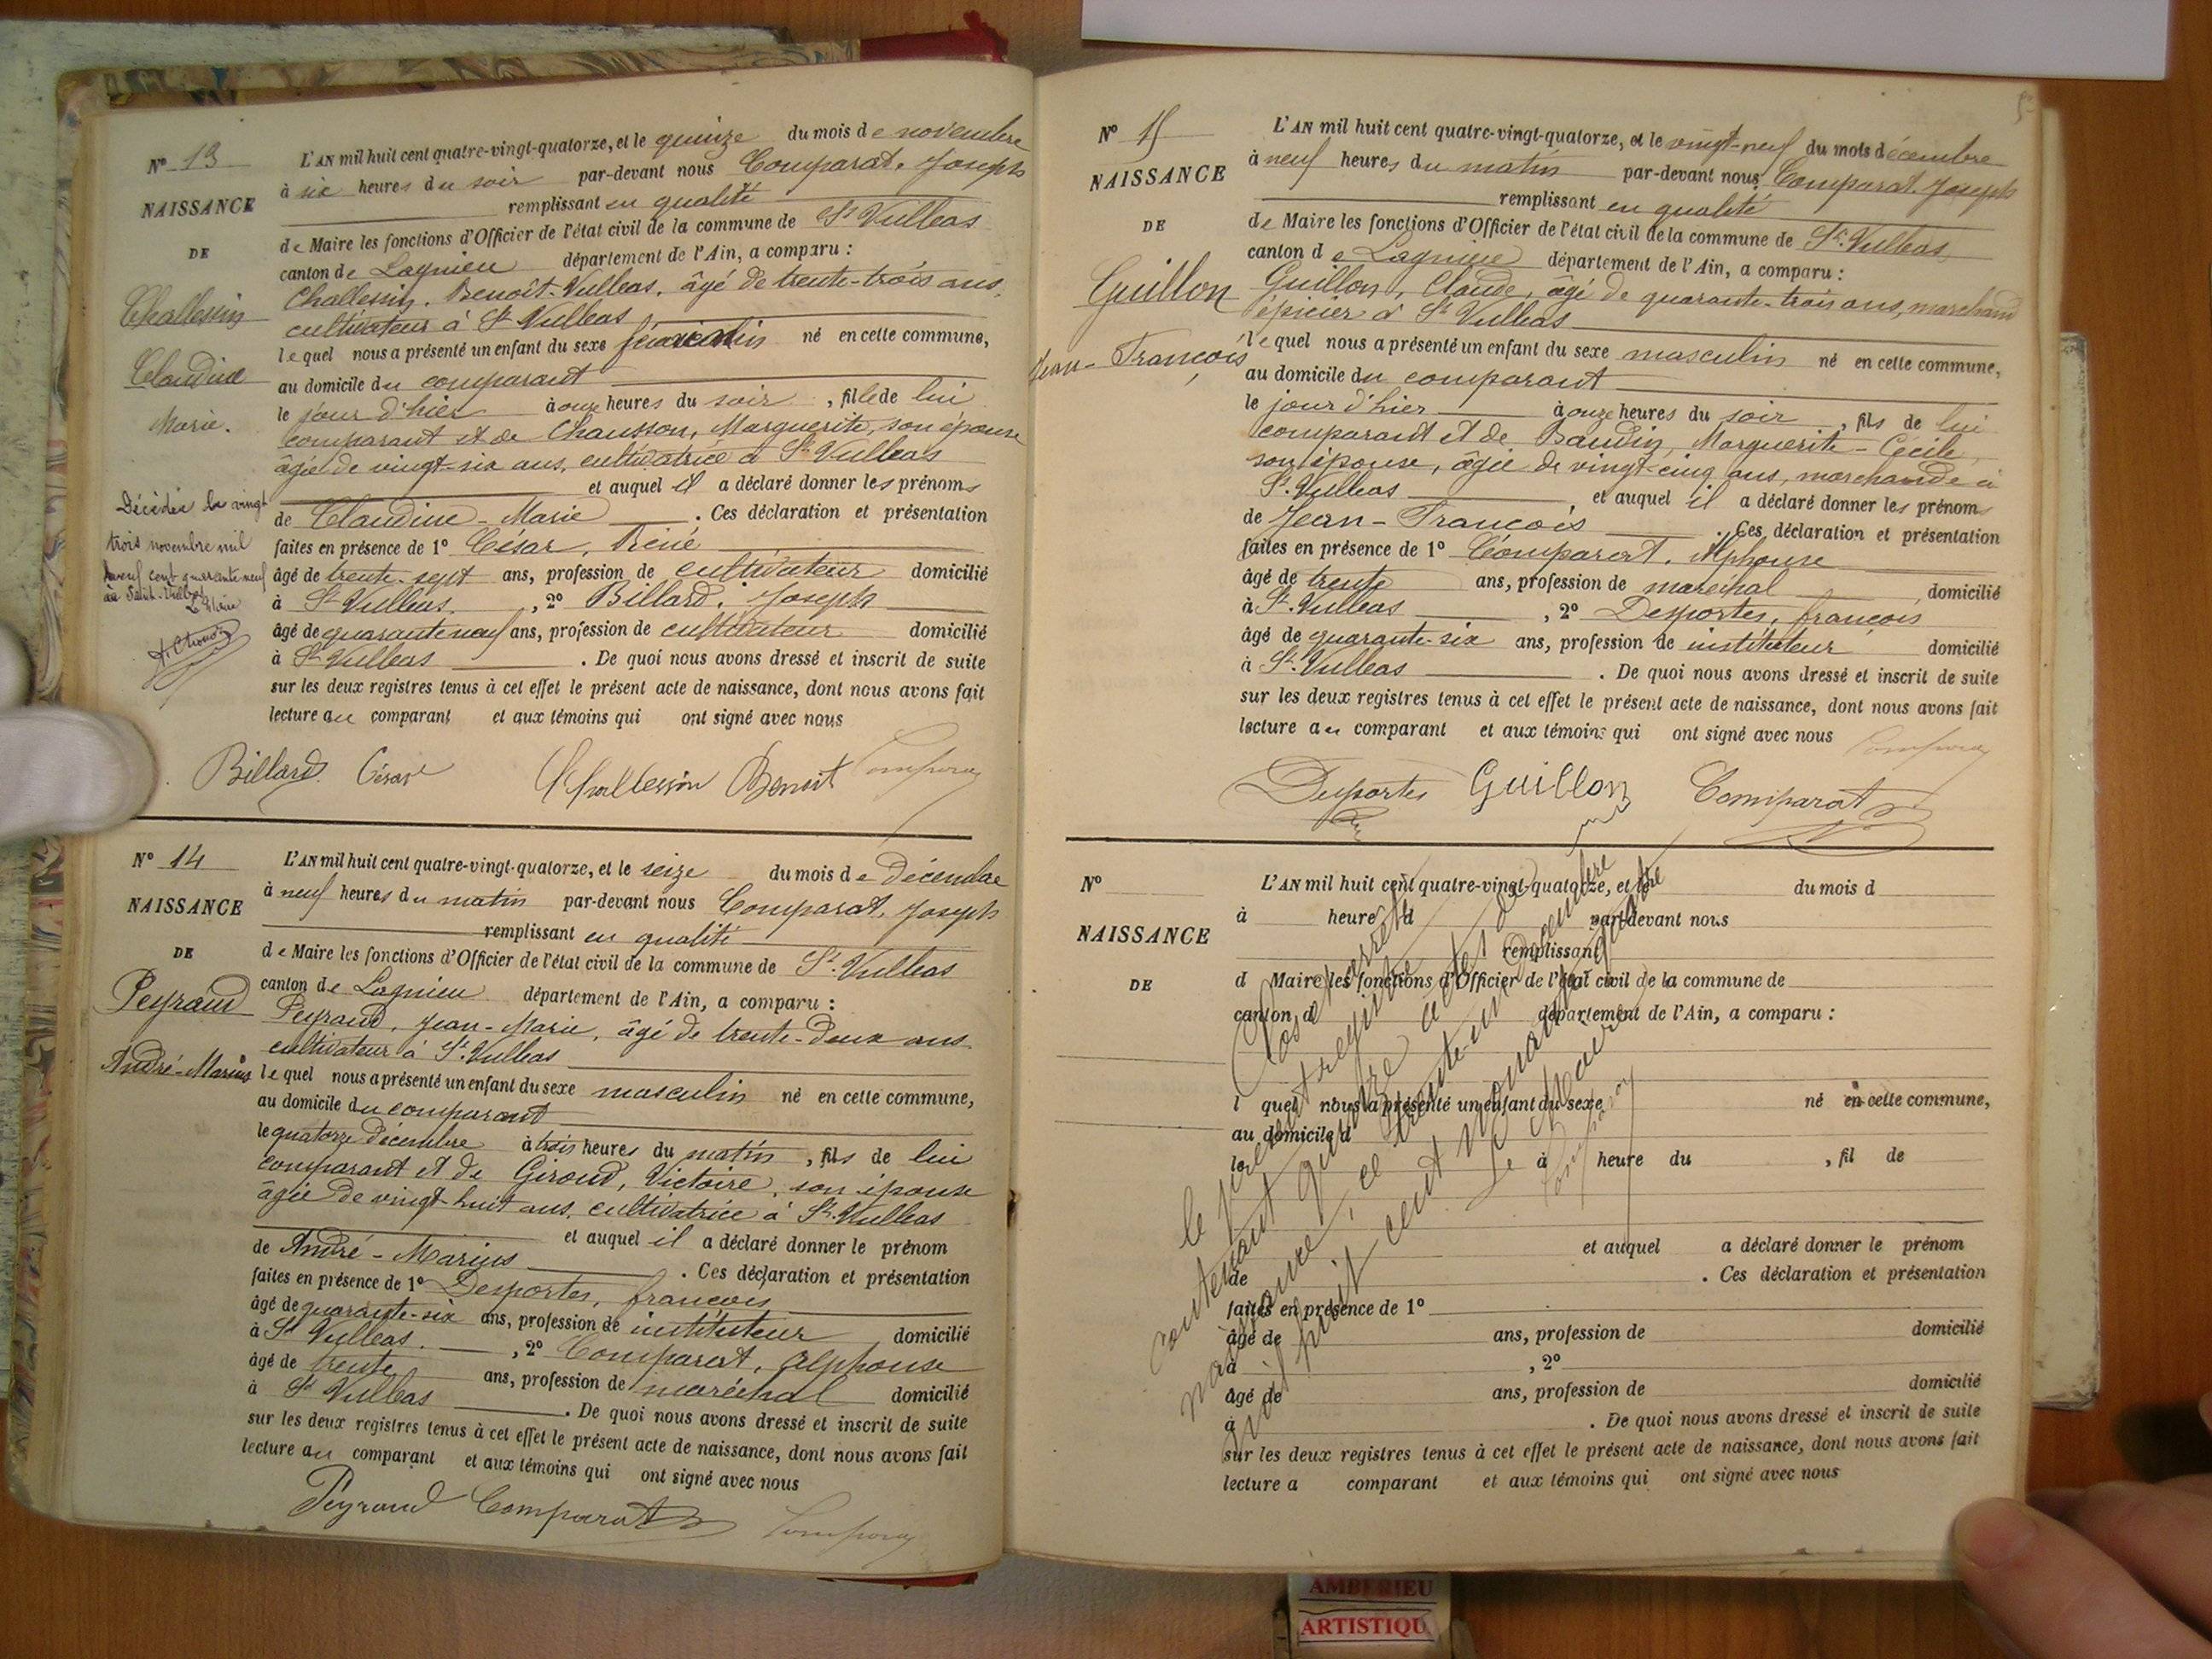 N° 13
NAISSANCE
DE
Challessin
Claudine
Marie.
Décédée le vingt
trois novembre mil
neuf cent quarante-neuf
à Saint-Vulbas
Le Maire
L'AN mil huit cent quatre-vingt-quatorze, et le quinze du mois de novembre
à six heures du soir par-devant nous Comparat, Joseph
remplissant en qualité
de Maire les fonctions d'Officier de l'état civil de la commune de St Vulbas
canton de Lagnieu département de l'Ain, a comparu :
Challessin, Benoît-Vulbas, âgé de trente-trois ans,
cultivateur à St Vulbas
lequel nous a présenté un enfant du sexe féminin né en cette commune,
au domicile du comparant
le jour d'hier à onze heures du soir, fille de lui
comparant et de Chausson, Marguerite, son épouse
âgée de vingt-six ans, cultivatrice à St Vulbas
et auquel il a déclaré donner les prénoms
de Claudine-Marie. Ces déclaration et présentation
faites en présence de 1° César, René
âgé de trente-sept ans, profession de cultivateur domicilié
à St Vulbas, 2° Billard, Joseph
âgé de quarante neuf ans, profession de cultivateur domicilié
à St Vulbas. De quoi nous avons dressé et inscrit de suite
sur les deux registres tenus à cet effet le présent acte de naissance, dont nous avons fait
lecture au comparant et aux témoins qui ont signé avec nous
Billard César Challessin Benoit
N° 14
NAISSANCE
DE
Peyraud
André-Marius
L'AN mil huit cent quatre-vingt-quatorze, et le seize du mois de décembre
à neuf heures du matin par-devant nous Comparat, Joseph
remplissant en qualité
de Maire les fonctions d'Officier de l'état civil de la commune de St Vulbas
canton de Lagnieu département de l'Ain, a comparu :
Peyraud, Jean-Marie, âgé de trente-deux ans
cultivateur à St Vulbas
lequel nous a présenté un enfant du sexe masculin né en cette commune,
au domicile du comparant
le quatorze décembre à trois heures du matin, fils de lui
comparant et de Giroud, Victoire, son épouse
âgée de vingt-huit ans, cultivatrice à St Vulbas
et auquel il a déclaré donner le prénom
de André-Marius. Ces déclaration et présentation
faites en présence de 1° Desportes, françois
âgé de quarante-six ans, profession de instituteur domicilié
à St Vulbas., 2° Comparat, Alphonse
âgé de trente ans, profession de maréchal domicilié
à St Vulbas. De quoi nous avons dressé et inscrit de suite
sur les deux registres tenus à cet effet le présent acte de naissance, dont nous avons fait
lecture au comparant et aux témoins qui ont signé avec nous
Peyraud Comparat
N° 15
NAISSANCE
DE
Guillon
Jean-François
L'AN mil huit cent quatre-vingt-quatorze, et le vingt-neuf du mois décembre
à neuf heures du matin par-devant nous Comparat, Joseph
remplissant en qualité
de Maire les fonctions d'Officier de l'état civil de la commune de St. Vulbas
canton de Lagnieu département de l'Ain, a comparu :
Guillon, Claude, âgé de quarante-trois ans, marchand
épicier à St Vulbas
lequel nous a présenté un enfant du sexe masculin né en cette commune,
au domicile du comparant
le jour d'hier à onze heures du soir, fils de lui
comparant et de Baudin, Marguerite-Cécile,
son épouse, âgée de vingt-cinq ans, marchande à
St. Vulbas et auquel il a déclaré donner les prénoms
de Jean-François. Ces déclaration et présentation
faites en présence de 1° Comparat, Alphonse
âgé de trente ans, profession de maréchal domicilié
à St. Vulbas, 2° Desportes, françois
âgé de quarante-six ans, profession de instituteur domicilié
à St. Vulbas. De quoi nous avons dressé et inscrit de suite
sur les deux registres tenus à cet effet le présent acte de naissance, dont nous avons fait
lecture au comparant et aux témoins qui ont signé avec nous
Desportes Guillon Comparat
N°
NAISSANCE
DE
L'AN mil huit cent quatre-vingt-quatorze, et le du mois d
à heure d par-devant nous
remplissant
d Maire les fonctions d'Officier de l'état civil de la commune de
canton d département de l'Ain, a comparu :
l quel nous a présenté un enfant du sexe né en cette commune,
au domicile d
le à heure du , fil de
et auquel a déclaré donner le prénom
de . Ces déclaration et présentation
faites en présence de 1°
âgé de ans, profession de domicilié
à , 2°
âgé de ans, profession de domicilié
à . De quoi nous avons dressé et inscrit de suite
sur les deux registres tenus à cet effet le présent acte de naissance, dont nous avons fait
lecture a comparant et aux témoins qui ont signé avec nous
Clos et arrêté
le présent registre
contenant quinze actes de
naissance, ce trente-un décembre
mil huit cent quatre
Le Maire
AMBERIEU
ARTISTIQU